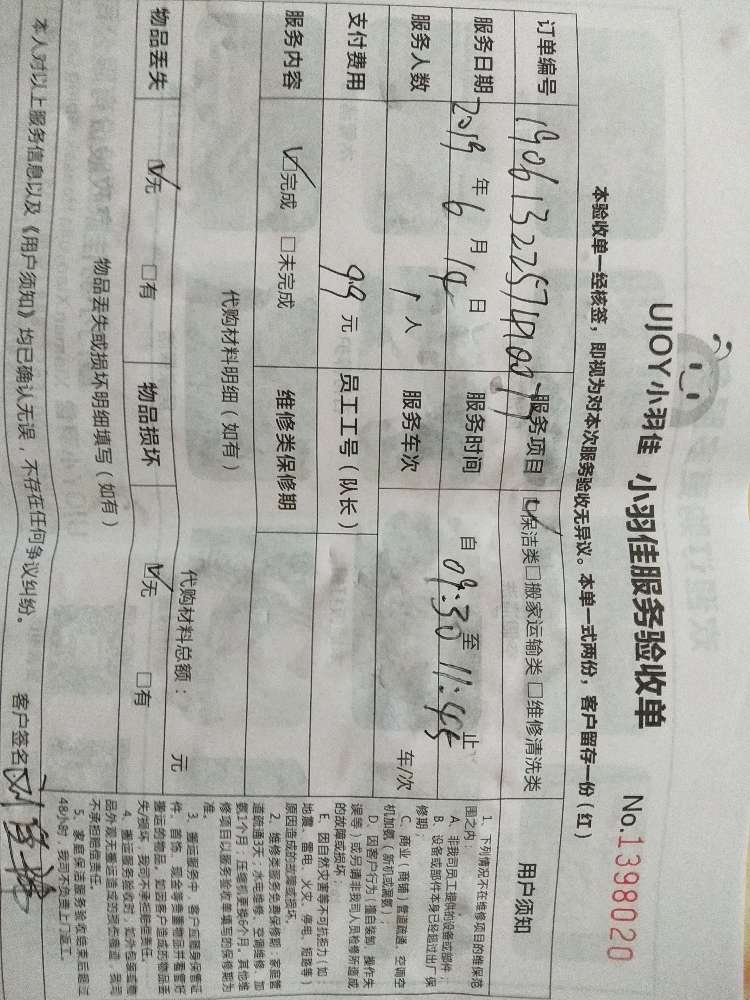 UJOY小羽佳 小羽佳服务验收单 No.1398020
本验收单一经核签，即视为对本次服务验收无异议。本单一式两份，客户留存一份（红）
订单编号 服务项目 ☑保洁类□搬家运输类 □维修清洗类
服务日期 2019 年 6 月 19 日 服务时间 自 09:30 至 11:45 止
服务人数 1 人 服务车次 车/次
支付费用 99 元 员工工号（队长）
服务内容 ☑完成 □未完成 维修类保修期
代购材料明细（如有）
代购材料总额： 元
物品丢失 ☑无 □有 物品损坏 ☑无 □有
物品丢失或损坏明细填写（如有）
本人对以上服务信息以及《用户须知》均已确认无误，不存在任何争议纠纷。
客户签名
用户须知
1、下列情况不在维修项目的维保范
围之内：
A、非我司员工提供的设备或部件；
B、设备或部件本身已经超过出厂保
修期；
C、商业（商铺）管道疏通、空调空
机加氨（新机或漏氨）；
D、因客户行为（擅自装卸、操作失
误等）或另请非我司人员检修所造成
的故障或损坏；
E、因自然灾害等不可抗拒力（如：
地震、雷电、火灾、停电、短路等）
原因造成的故障或损坏。
2、维修类服务免费保修期：家庭管
道疏通3天；水电维修、空调维修、加
氨1个月，压缩机更换6个月。其他维
修项目以服务验收单填写的保修期为
准。
3、搬运服务中，客户应随身保管证
件、首饰、现金等贵重物品并看管好
搬运的物品，如因客户造成的物品丢
失/破坏，我司不承担赔偿责任。
4、搬运服务验收时，如外包装或物
品外观无搬运造成的损伤痕迹，我司
不承担赔偿责任。
5、家庭保洁服务验收结束后超过
48小时，我司不负责上门返工。